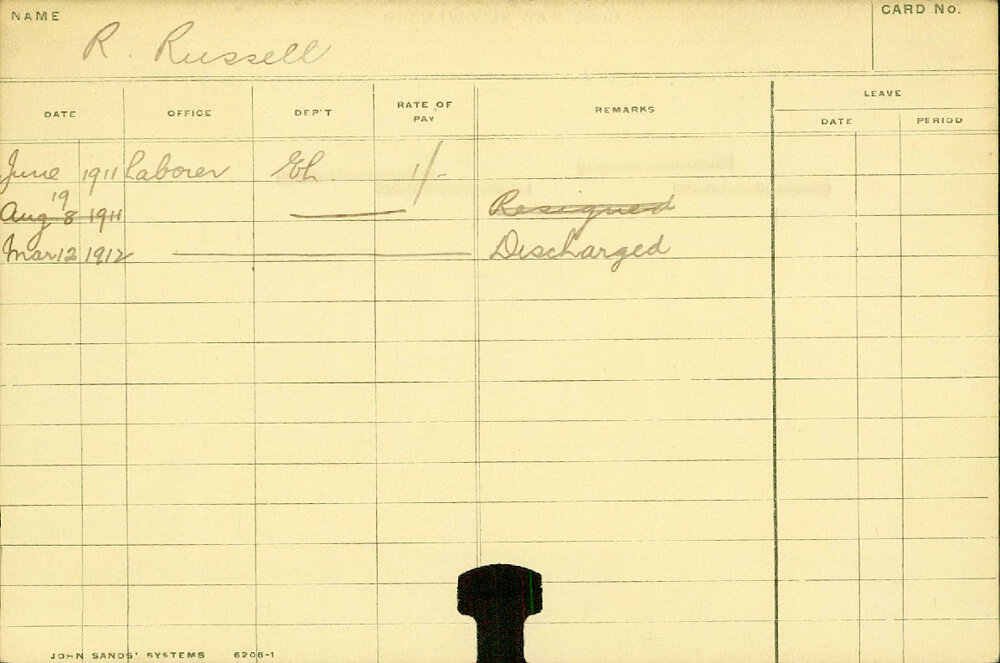 NAME
R. Russell
CARD No.
DATE OFFICE DEP'T RATE OF PAY REMARKS LEAVE
DATE PERIOD
June 1911 Laborer Eh 1/-
19
Aug 8 1911 Resigned
Mar 12 1912 Discharged
JOHN SANDS' SYSTEMS 6206-1